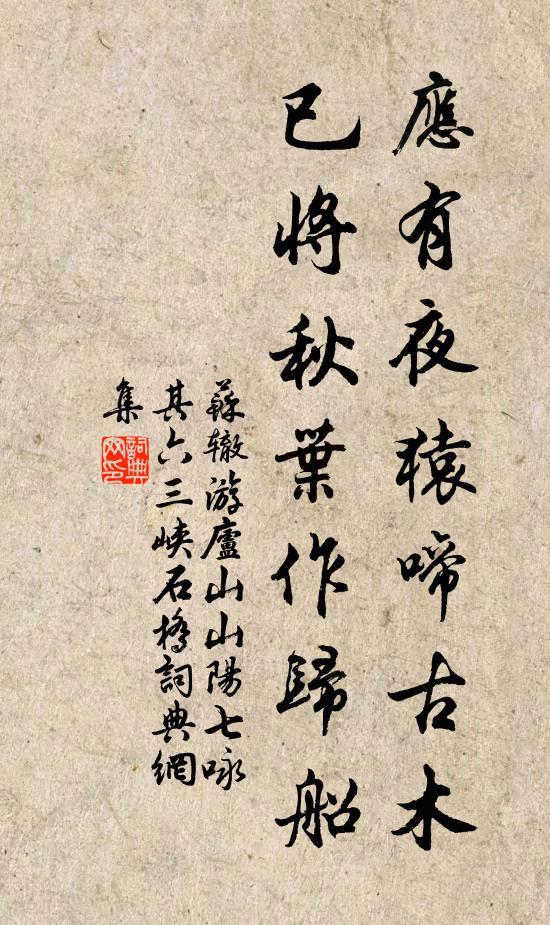 應有夜猿啼古木
已將秋葉作歸船
蘇辙游廬山山陽七咏
其六三峡石橋詞典網
集
詞典
网印